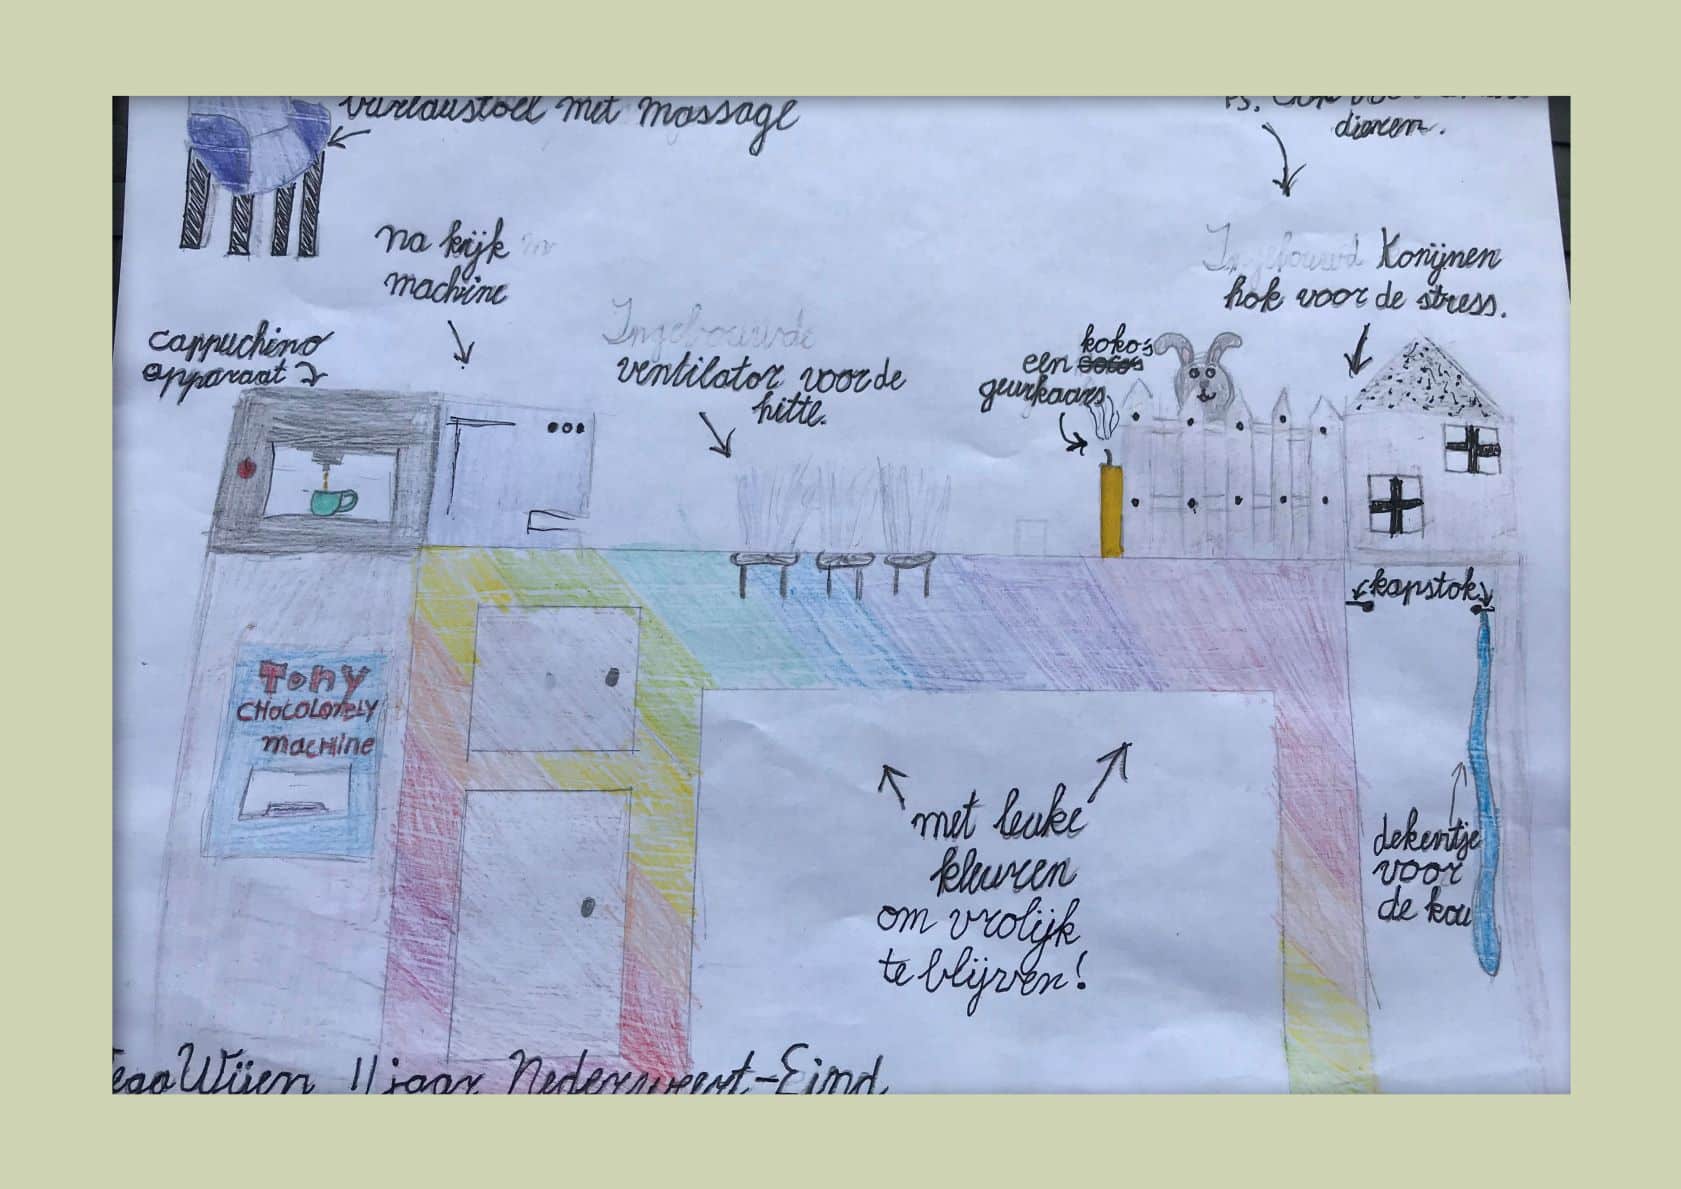 bureaustoel met massage
PS. Ook voor
dieren.
na kijk
machine
Ingebouwd Konijnen
hok voor de stress.
cappuchino
apparaat
Ingebouwde
ventilator voor de
hitte.
een kokos
geurkaars
kapstok
Tony
CHOCOLONELY
machine
met leuke
kleuren
om vrolijk
te blijven!
dekentje
voor
de kou
11 jaar Nederweert-Eind